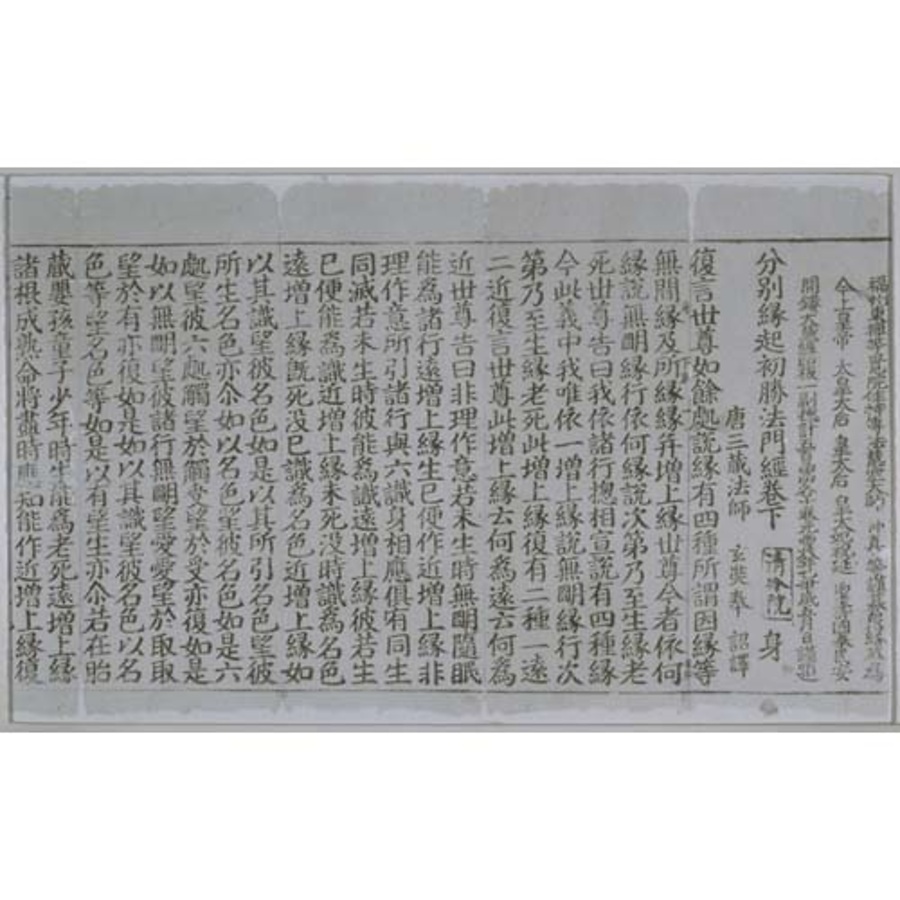 福州東禪等覺院住持傳法慧空大師 沖真
今上皇帝 太皇太后 皇太后 皇太妃祝延 聖壽國泰民安
開鏤大藏經 一副 日謹題
分別緣起初勝法門經卷下 身
唐三藏法師 玄奘奉 詔譯
復言世尊如餘處說緣有四種所謂因緣等
無間緣及所緣緣并增上緣世尊今者依何
緣說無明緣行依何緣說次第乃至生緣老
死世尊告曰我依諸行揔相宣說有四種緣
今此義中我唯依一增上緣說無明緣行次
第乃至生緣老死此增上緣復有二種一遠
二近復言世尊此增上緣云何為遠云何為
近世尊告曰非理作意若未生時無明隨眠
能為諸行遠增上緣生已便作近增上緣非
理作意所引諸行與六識身相應俱有同生
同滅若未生時彼能為識遠增上緣彼若生
已便能為識近增上緣未死沒時識為名色
遠增上緣旣死沒已識為名色近增上緣如
以其識望彼名色如是以其所引名色望彼
所生名色亦尒如以名色望彼名色如是六
處望彼六處觸望於觸受望於受亦復如是
如以無明望彼諸行無明望愛愛望於取取
望於有亦復如是如以其識望彼名色以名
色等望名色等如是以有望生亦尒若在胎
藏嬰孩童子少年時生能為老死遠增上緣
諸根成熟命將盡時應知能作近增上緣復